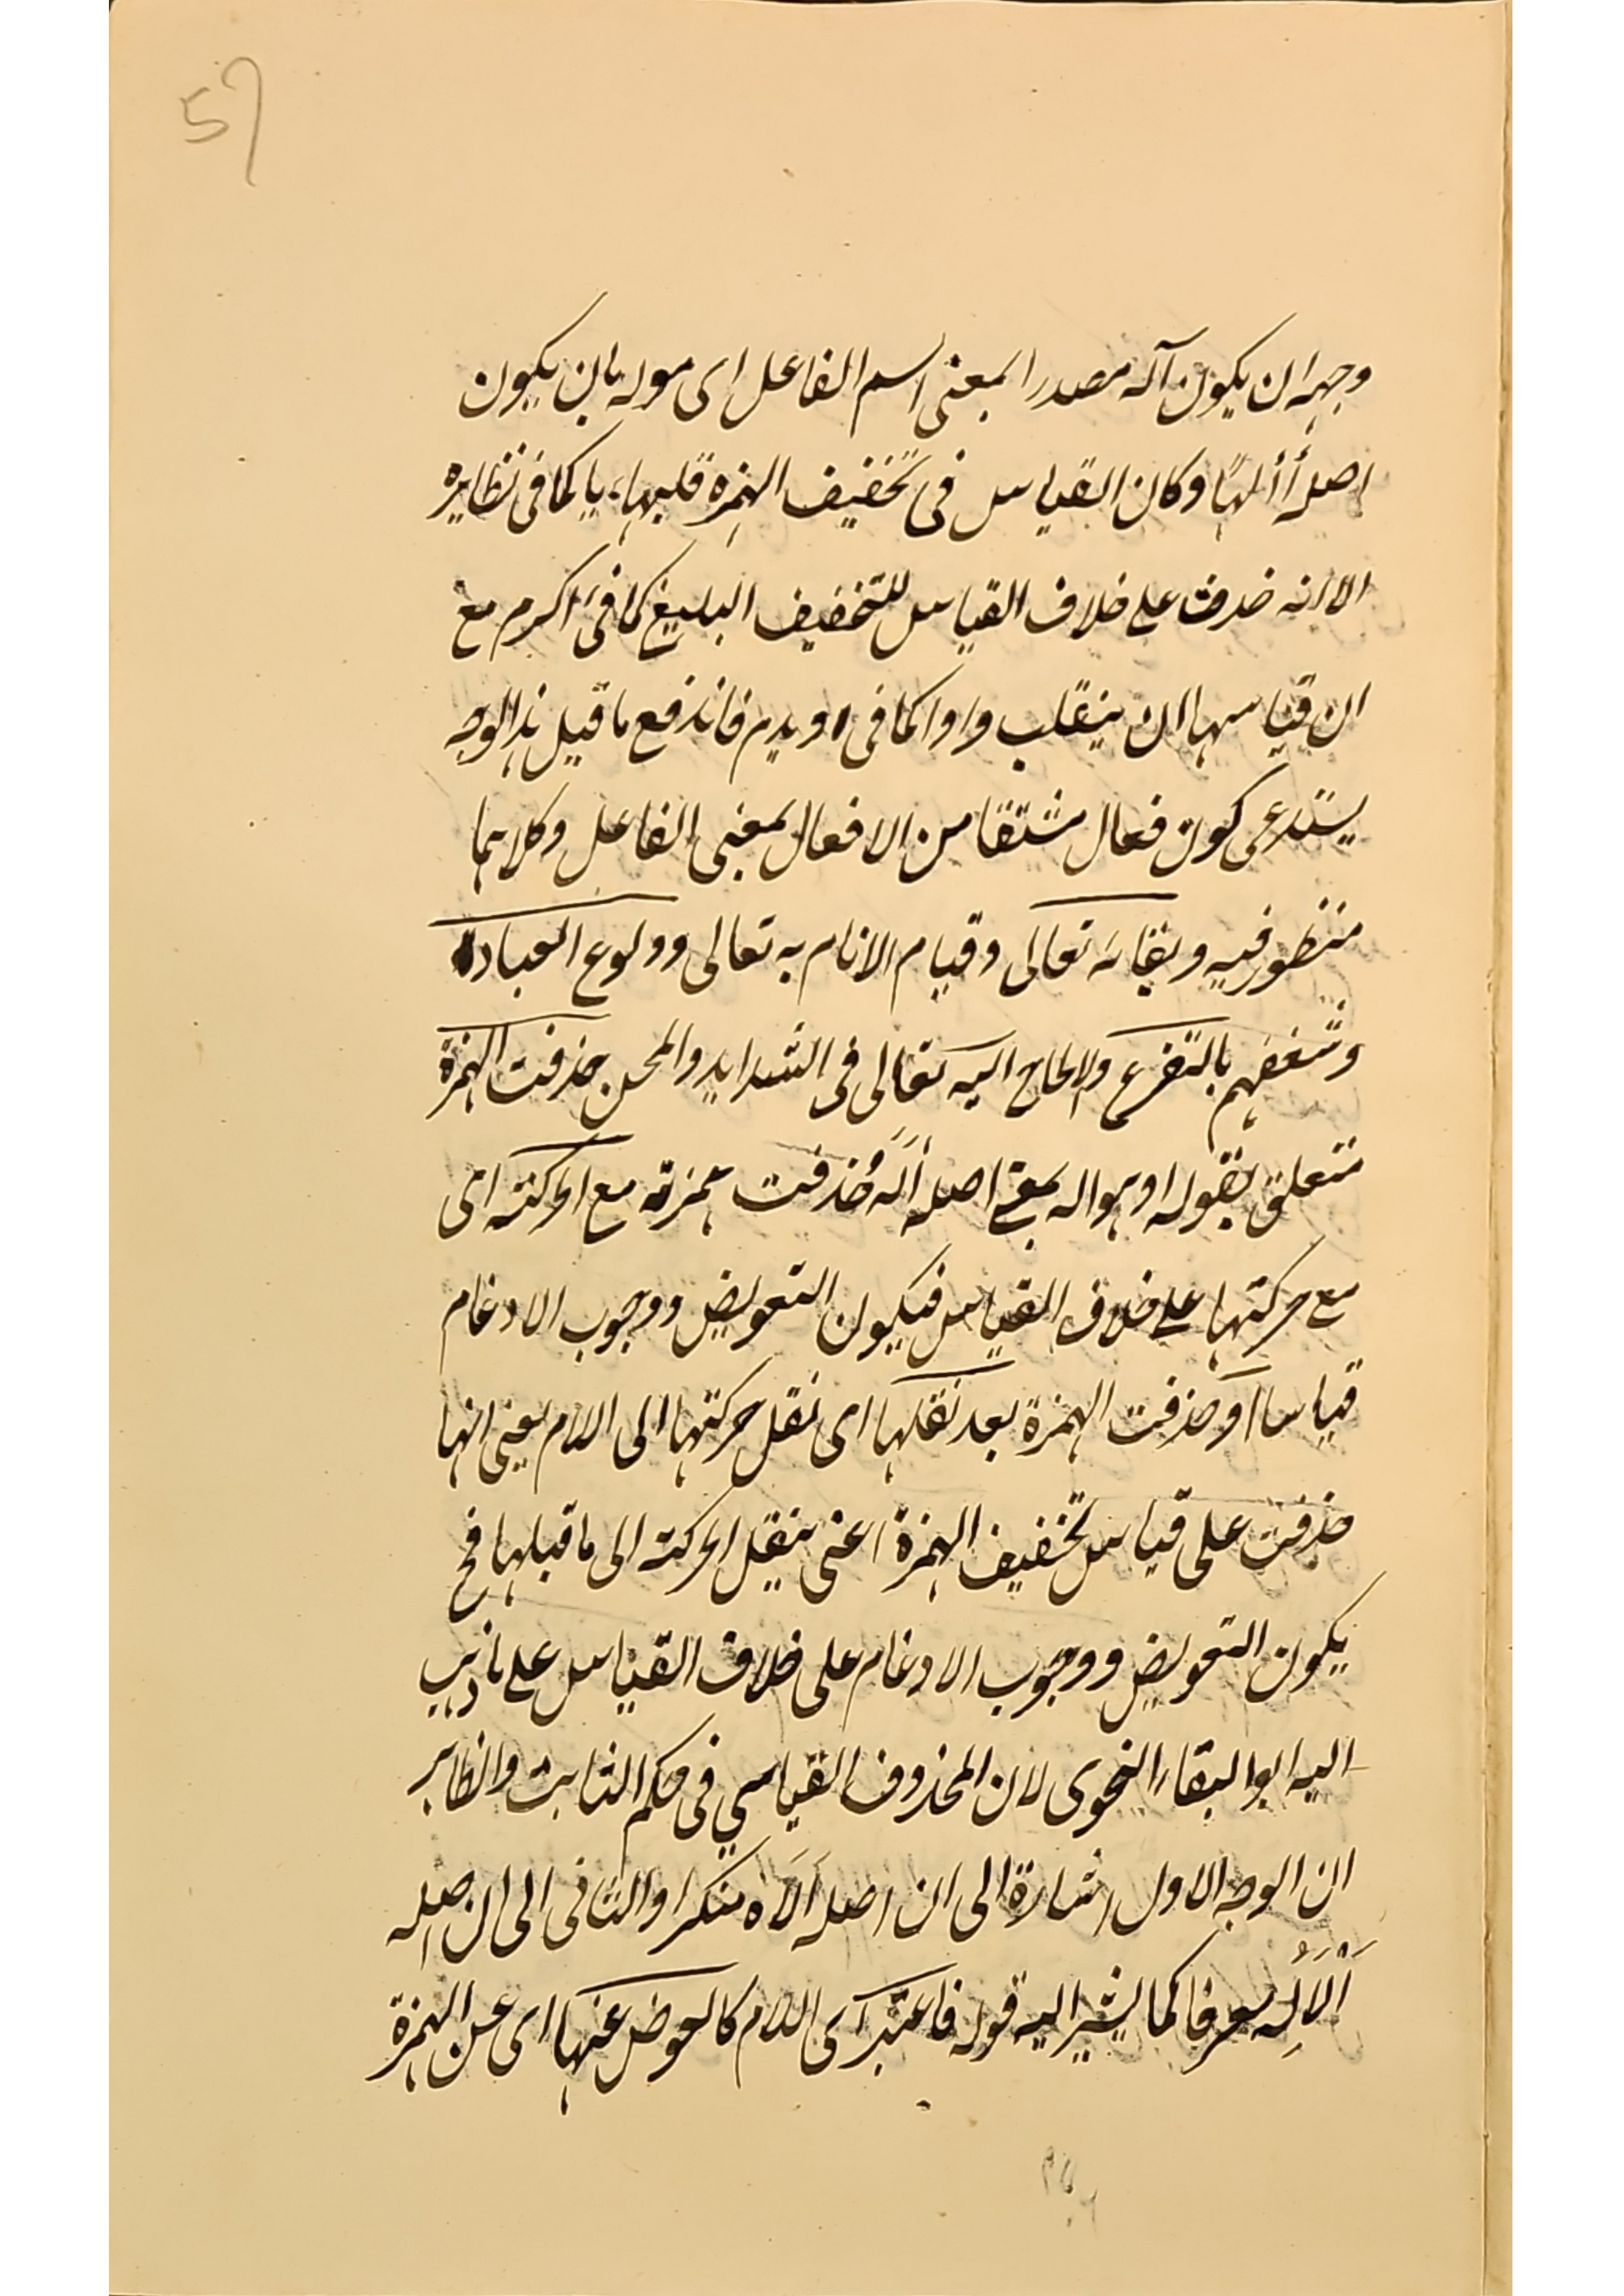 57
وجهه ان يكون آله مصدرا بمعنى اسم الفاعل اى موله بان يكون
اصله أألهًا وكان القياس فى تخفيف الهمزه قلبها ياء كما فى نظايره
الا انه حذفت على خلاف القياس للتخفيف البليغ كما فى اكرم مع
ان قياسها ان ينقلب واوا كما فى اويدم فاندفع ما قيل هذا الوجه
يستدعى كون فعال مشتقا من الافعال بمعنى الفاعل وكلاهما
منظور فيه وبقائه تعالى وقيام الانام به تعالى وولوع العباده
وشغفهم بالتضرع والالحاح اليه تعالى فى الشدايد والمحن حذفت الهمزة
متعلق بقوله او هو اله يعنى اصله اَلَهُ حُذفت همزته مع الحركته اى
مع حركتها على خلاف القياس فيكون التعويض ووجوب الادغام
قياسا او حذفت الهمزة بعد نقلها اى نقل حركتها الى اللام يعنى انها
حذفت على قياس تخفيف الهمزة اعنى ينقل الحركته الى ما قبلها فح
يكون التعويض ووجوب الادغام على خلاف القياس على ما ذهب
اليه ابو البقاء النحوى لان المحذوف القياسي فى حكم الثابت والظاهر
ان الوجه الاول اشارة الى ان اصله اَلَاه منكرا والثانى الى ان اصله
اَلْاَلِهُ معرفا كما يشير اليه قوله فاعتبر اى اللام كالعوض عنها اى عن الهمزة